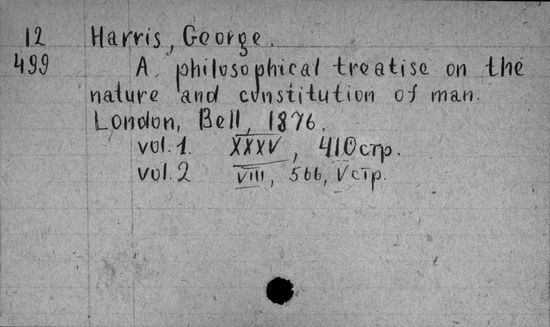 12 Harris, George.
499 A philosophical treatise on the
nature and constitution of man.
London, Bell, 1876.
vol. 1. XXXV, 410 стр.
vol. 2 VIII, 566, V стр.